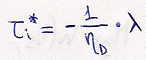 τᵢ* = - 1/η_D · λ